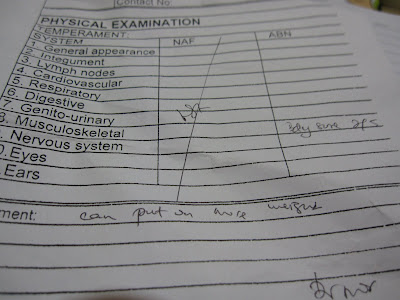 Contact No:
PHYSICAL EXAMINATION
TEMPERAMENT:
SYSTEM NAF ABN
1. General appearance
2. Integument
3. Lymph nodes
4. Cardiovascular
5. Respiratory
6. Digestive
7. Genito-urinary
8. Musculoskeletal 2/5
9. Nervous system
0. Eyes
Ears
ment: can put on more weight
Dr nor